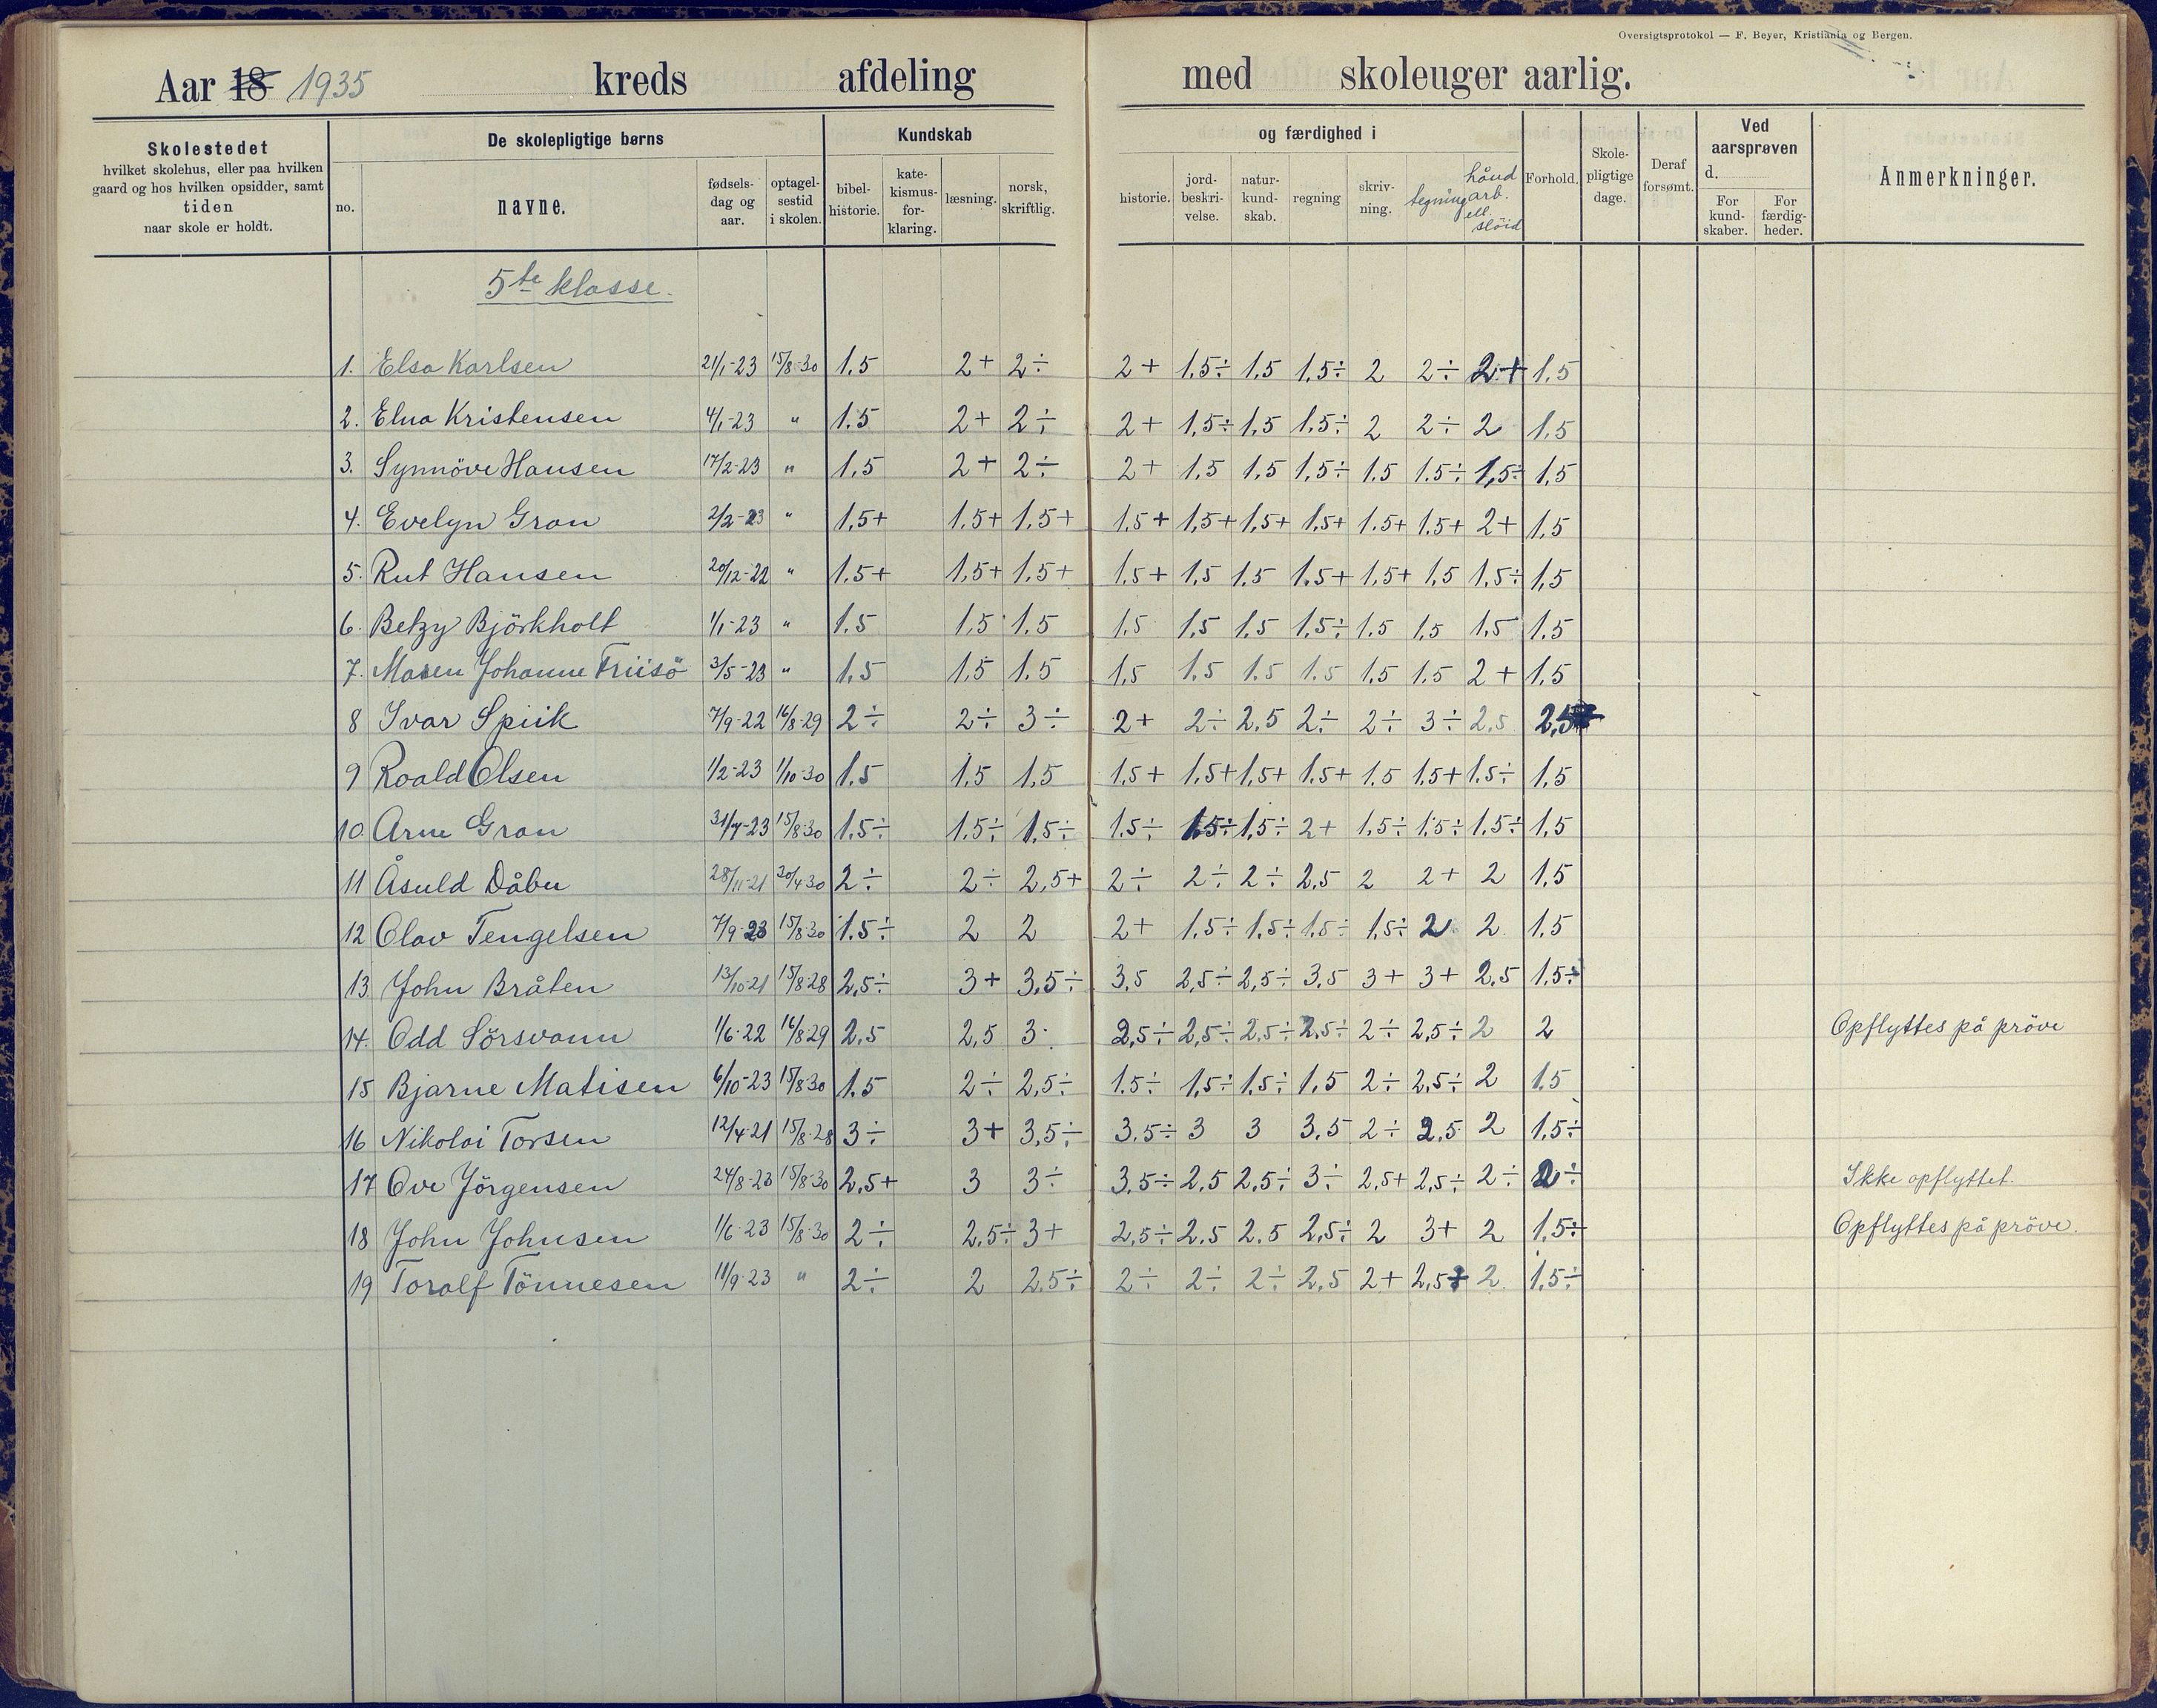 Oversigtsprotokol — F. Beyer, Kristiania og Bergen.
Aar 18 1935 kreds afdeling med skoleuger aarlig.
Skolestedet
hvilket skolehus, eller paa hvilken
gaard og hos hvilken opsidder, samt
tiden
naar skole er holdt.
De skolepligtige børns
no.
navne.
fødsels-
dag og
aar.
optagel-
sestid
i skolen.
Kundskab
bibel-
historie.
kate-
kismus-
for-
klaring.
læsning.
norsk,
skriftlig.
og færdighed i
historie.
jord-
beskri-
velse.
natur-
kund-
skab.
regning
skriv-
ning.
tegning
hånd
arb.
ell.
slöid
Forhold.
Skole-
pligtige
dage.
Deraf
forsømt.
Ved
aarsprøven
d.
For
kund-
skaber.
For
færdig-
heder.
Anmerkninger.
5te klasse.
1. Elsa Karlsen 21/1-23 15/8-30 1.5 2+ 2÷ 2+ 1.5÷ 1.5 1.5÷ 2 2÷ 2+ 1.5
2. Elna Kristensen 4/1-23 " 1.5 2+ 2÷ 2+ 1.5÷ 1.5 1.5÷ 2 2÷ 2 1.5
3. Synnöve Hansen 17/2-23 " 1.5 2+ 2÷ 2+ 1.5 1.5 1.5÷ 1.5 1.5÷ 1,5÷ 1.5
4. Evelyn Gran 2/2-23 " 1.5+ 1.5+ 1.5+ 1.5+ 1.5+ 1.5+ 1.5+ 1.5+ 1.5+ 2+ 1.5
5. Rut Hansen 20/12-22 " 1.5+ 1.5+ 1.5+ 1.5+ 1.5 1.5 1.5+ 1.5+ 1.5 1.5÷ 1.5
6. Betzy Björkholt 1/1-23 " 1.5 1.5 1.5 1.5 1.5 1.5 1.5÷ 1.5 1.5 1.5 1.5
7. Maren Johanne Friisö 3/5-23 " 1.5 1.5 1.5 1.5 1.5 1.5 1.5 1.5 1.5 2+ 1.5
8 Ivar Spiik 7/9-22 16/8-29 2÷ 2÷ 3÷ 2+ 2÷ 2.5 2÷ 2÷ 3÷ 2.5 2,5
9 Roald Olsen 1/2-23 1/10-30 1.5 1.5 1.5 1.5+ 1.5+ 1.5+ 1.5+ 1.5 1.5+ 1.5÷ 1.5
10. Arne Gran 31/7-23 15/8-30 1.5÷ 1.5÷ 1.5÷ 1.5÷ 1.5÷ 1.5÷ 2+ 1.5÷ 1.5÷ 1.5÷ 1.5
11 Åsuld Dåbu 28/11-21 20/4-30 2÷ 2÷ 2,5+ 2÷ 2÷ 2÷ 2,5 2 2+ 2 1.5
12 Olav Tengelsen 7/9-23 15/8-30 1.5÷ 2 2 2+ 1.5÷ 1.5÷ 1.5÷ 1.5÷ 2 2 1.5
13. John Bråten 13/10-21 15/8-28 2,5÷ 3+ 3,5÷ 3.5 2,5÷ 2,5÷ 3,5 3+ 3+ 2,5 1.5÷
14. Odd Sörsvann 1/6-22 16/8-29 2,5 2,5 3 2,5÷ 2,5÷ 2,5÷ 2.5÷ 2÷ 2,5÷ 2 2 Opflyttes på pröve
15 Bjarne Matisen 6/10-23 15/8-30 1.5 2÷ 2,5÷ 1.5÷ 1.5÷ 1.5÷ 1,5 2÷ 2,5÷ 2 1.5
16 Nikolai Torsen 12/4-21 15/8-28 3÷ 3+ 3,5÷ 3.5÷ 3 3 3.5 2÷ 2.5 2 1.5÷
17 Ove Jörgensen 24/8-23 15/8-30 2,5+ 3 3÷ 3,5÷ 2,5 2,5÷ 3÷ 2,5+ 2,5÷ 2÷ 2÷ Ikke opflyttet.
18 John Johnsen 1/6-23 15/8-30 2÷ 2,5÷ 3+ 2,5÷ 2.5 2.5 2,5÷ 2 3+ 2 1.5÷ Opflyttes på pröve.
19 Toralf Tönnesen 11/9-23 " 2÷ 2 2,5÷ 2÷ 2÷ 2÷ 2,5 2+ 2,5+ 2 1.5÷